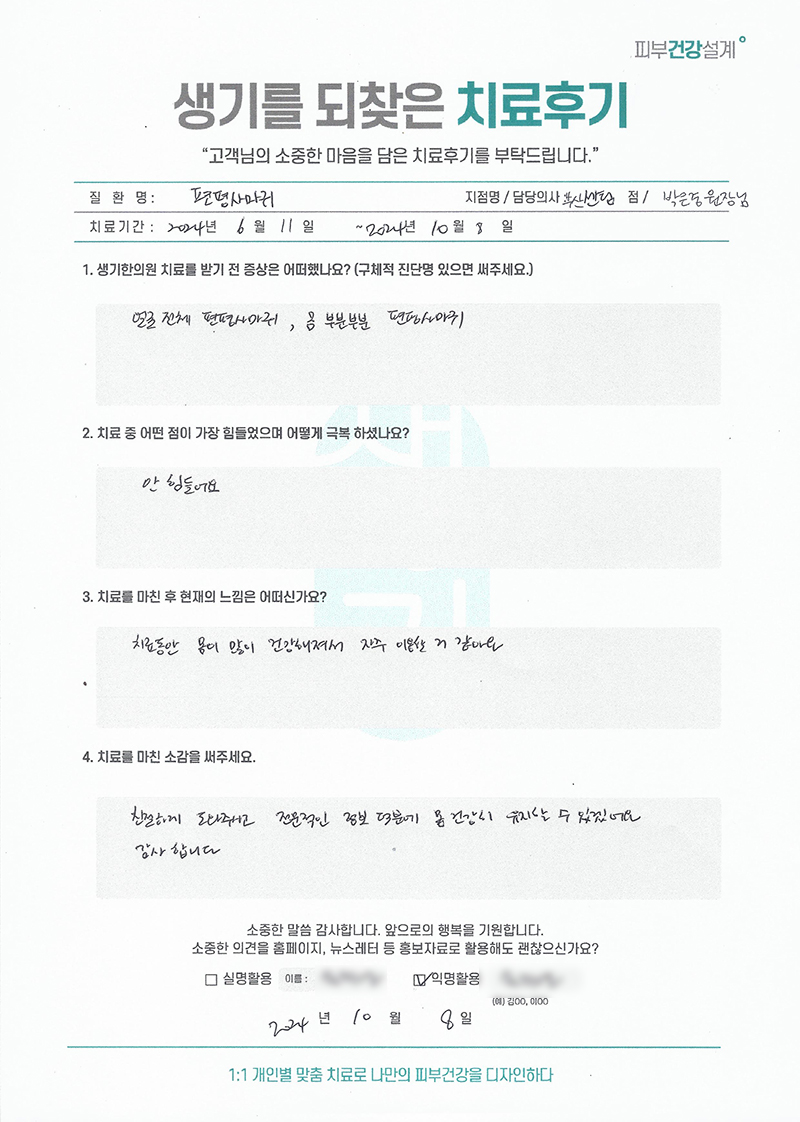 피부건강설계
생기를 되찾은 치료후기
“고객님의 소중한 마음을 담은 치료후기를 부탁드립니다.”
질 환 명 : 편평사마귀 지점명 / 담당의사 부산센텀 점 / 박은경 원장님
치료기간 : 2024년 6월 11일 ~2024년 10월 8일
1. 생기한의원 치료를 받기 전 증상은 어떠했나요? (구체적 진단명 있으면 써주세요.)
얼굴 전체 편평사마귀, 몸 부분부분 편평사마귀
2. 치료 중 어떤 점이 가장 힘들었으며 어떻게 극복 하셨나요?
안 힘들어요
3. 치료를 마친 후 현재의 느낌은 어떠신가요?
치료동안 몸이 많이 건강해져서 자주 이용할 거 같아요
4. 치료를 마친 소감을 써주세요.
친절하게 도와주시고 전문적인 정보 덕분에 몸 건강히 유지할 수 있겠어요
감사합니다
소중한 말씀 감사합니다. 앞으로의 행복을 기원합니다.
소중한 의견을 홈페이지, 뉴스레터 등 홍보자료로 활용해도 괜찮으신가요?
실명활용 이름 : 익명활용
(예) 김OO, 이OO
2024년 10월 8일
1:1 개인별 맞춤 치료로 나만의 피부건강을 디자인하다